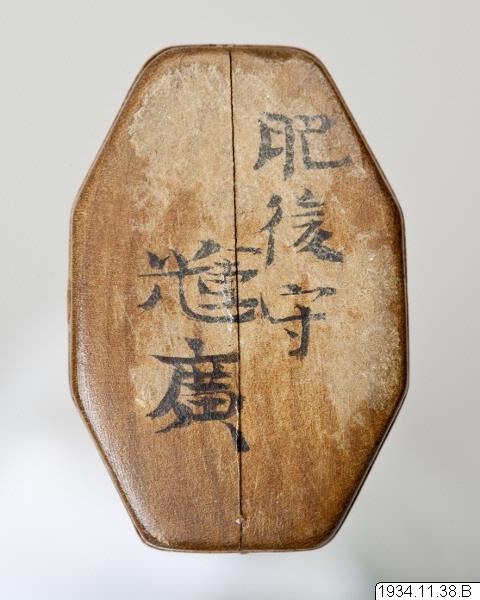 肥後守
輝廣
1934.11.38.B